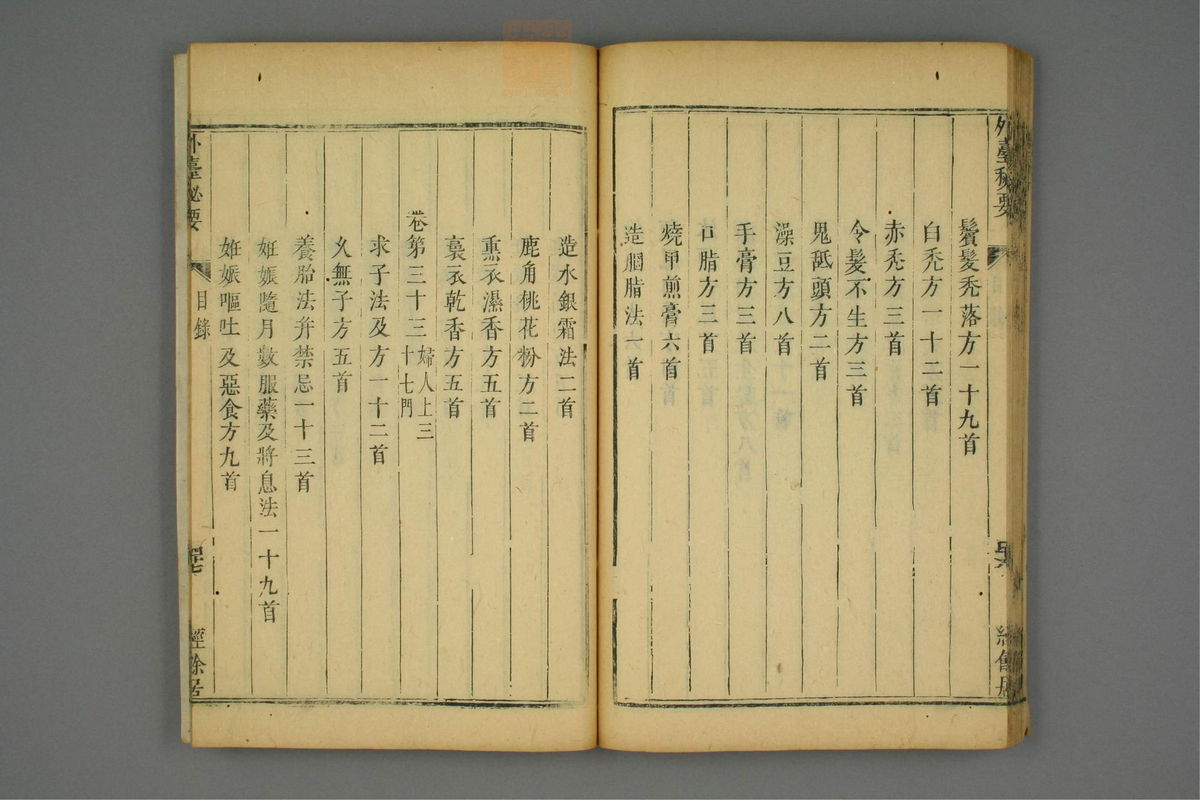 外臺秘要
鬢髮禿落方一十九首
白禿方一十二首
赤禿方三首
令髮不生方三首
鬼舐頭方二首
澡豆方八首
手膏方三首
口脂方三首
燒甲煎膏六首
造胭脂法一首
造水銀霜法二首
鹿角桃花粉方二首
熏衣濕香方五首
裛衣乾香方五首
卷第三十三 婦人上三十七門
求子法及方一十二首
久無子方五首
養胎法并禁忌一十三首
姙娠隨月數服藥及將息法一十九首
姙娠嘔吐及惡食方九首
外臺秘要
目錄
經餘居